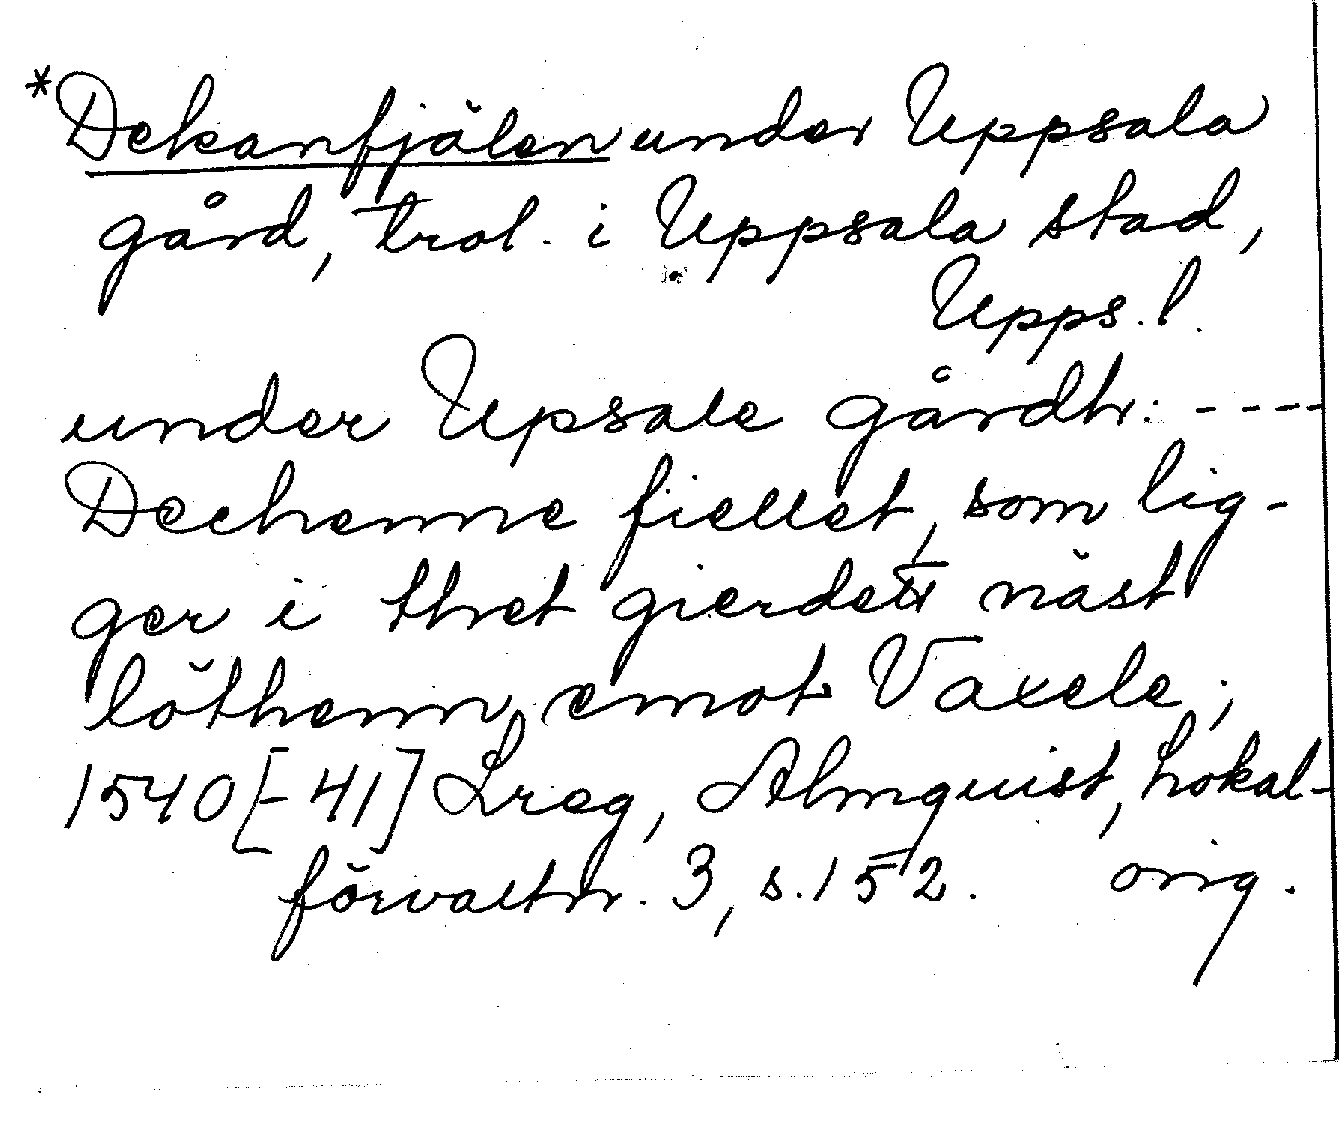 *Dekanfjälen under Uppsala
gård, trol. i Uppsala stad,
Upps. l.
under Upsale gårdh: ----
Dechenne fiellet, som lig-
ger i thet gierdett näst
löthenn emot Vaxele;
1540[-41] Lreg, Almquist, Lokal-
förvaltn. 3, s. 152. orig.